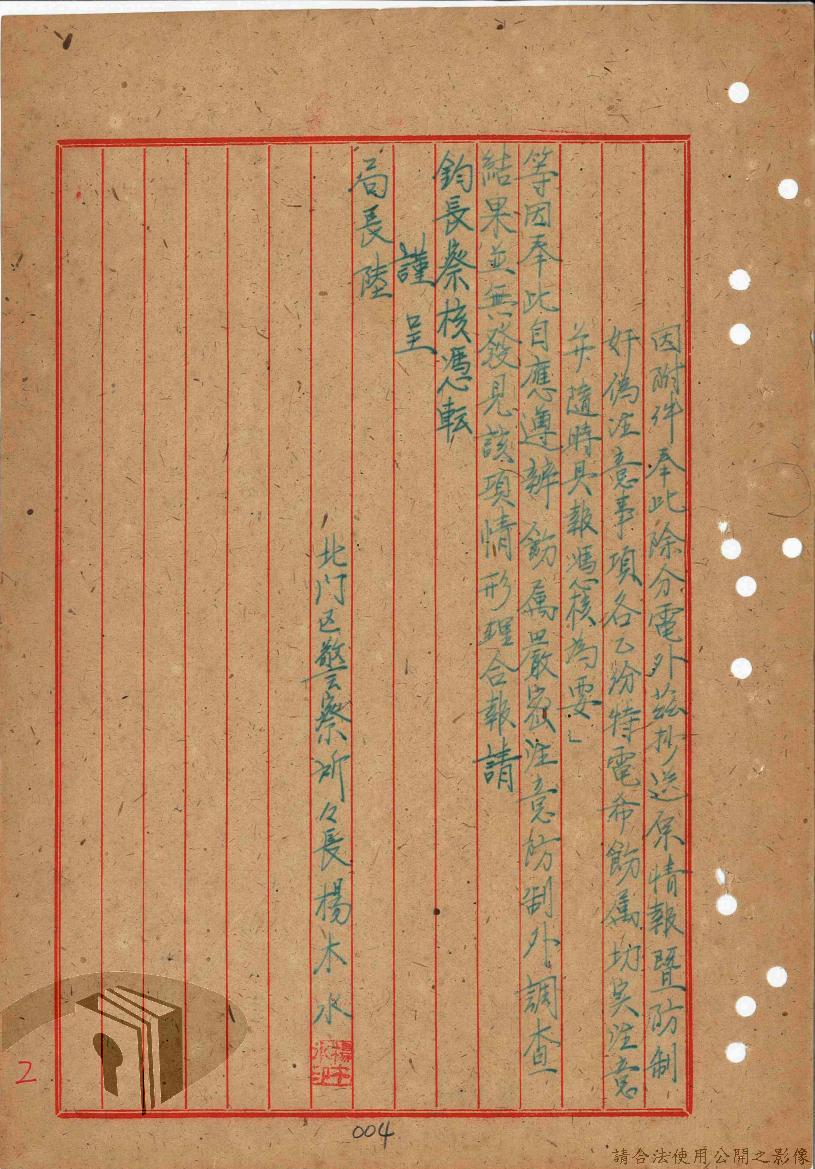 因附件奉此除分電外茲抄送原情報暨防制
奸偽注意事項各乙份特電希飭属切实注意
并隨時具報馮核為要」
等因奉此自應遵辦飭属嚴密注意防制外調查
結果並無發見該項情形理合報請
鈞長察核馮転
謹呈
局長陸
北门区警察所々長楊木水
楊木水印
2
004
請合法使用公開之影像